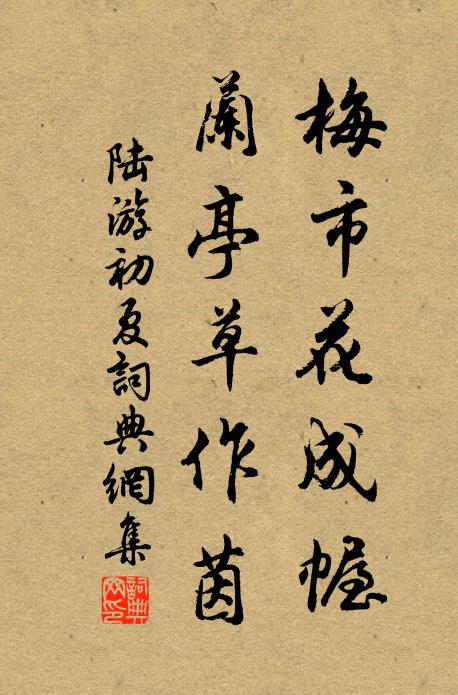 梅市花成幄
蘭亭草作茵
陸游初夏詞典網集
詞典网印